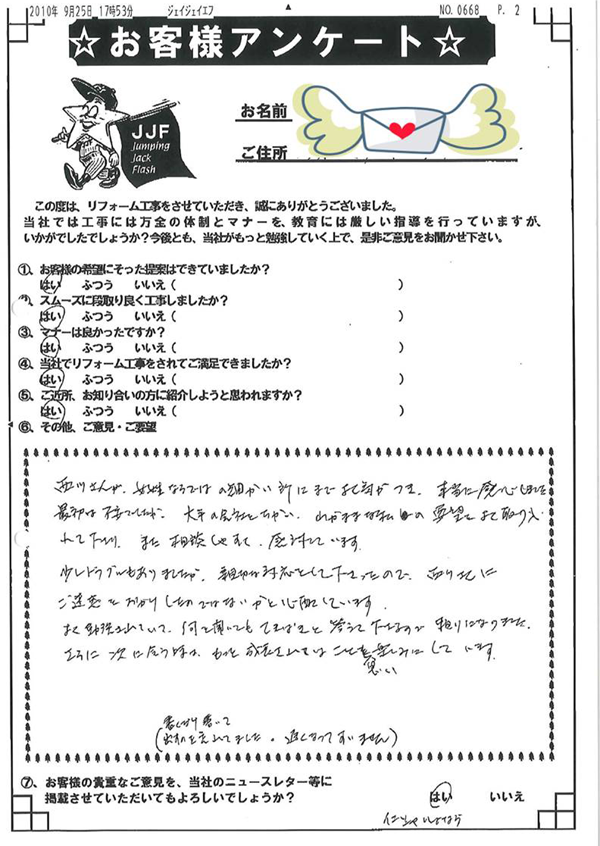 2010年 9月25日 17時53分 ジェイジェイエフ NO. 0668 P. 2
☆お客様アンケート☆
JJF
Jumping
Jack
Flash
お名前
ご住所
この度は、リフォーム工事をさせていただき、誠にありがとうございました。
当社では工事には万全の体制とマナーを、教育には厳しい指導を行っていますが、
いかがでしたでしょうか?今後とも、当社がもっと勉強していく上で、是非ご意見をお聞かせ下さい。
①、お客様の希望にそった提案はできていましたか?
はい ふつう いいえ ( )
、スムーズに段取り良く工事しましたか?
はい ふつう いいえ ( )
③、マナーは良かったですか?
はい ふつう いいえ ( )
④、当社でリフォーム工事をされてご満足できましたか?
はい ふつう いいえ ( )
⑤、ご近所、お知り合いの方に紹介しようと思われますか?
はい ふつう いいえ ( )
⑥、その他、ご意見・ご要望
西川さんが、女性ならではの細かい所にまでよく気がつき、本当に感心しました
最初は不安でしたが、大手の会社とちがい、わがままな私の要望をよく取り入
れて下さり、また相談しやすく、感謝しています。
少しトラブルもありましたが、親切な対応をして下さったので、
ご迷惑をおかけしたのではないかと心配しています。
よく勉強されていて、何を聞いてもてきぱきと答えて下さるので頼りになりました。
さらに次に会う時は、もっと成長されていることを楽しみにしています。
思い
(遅くなってすいません)
⑦、お客様の貴重なご意見を、当社のニュースレター等に
掲載させていただいてもよろしいでしょうか?
はい いいえ